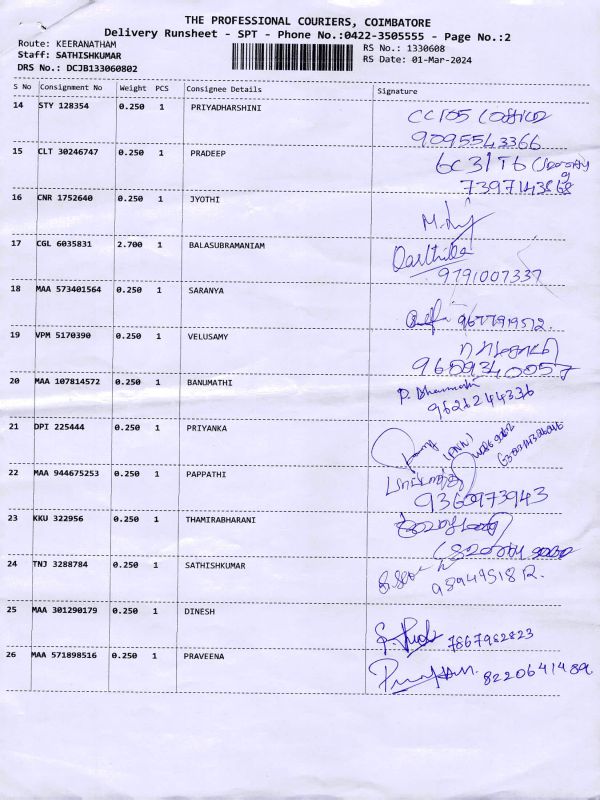 THE PROFESSIONAL COURIERS, COIMBATORE
Delivery Runsheet - SPT - Phone No.:0422-3505555 - Page No.:2
Route: KEERANATHAM
RS No.: 1330608
Staff: SATHISHKUMAR
RS Date: 01-Mar-2024
DRS No.: DCJB133060802
S No Consignment No Weight PCS Consignee Details Signature
14 STY 128354 0.250 1 PRIYADHARSHINI
9095543366
15 CLT 30246747 0.250 1 PRADEEP
16 CNR 1752640 0.250 1 JYOTHI
17 CGL 6035831 2.700 1 BALASUBRAMANIAM
9791007337
18 MAA 573401564 0.250 1 SARANYA
19 VPM 5170390 0.250 1 VELUSAMY
9609340057
20 MAA 107814572 0.250 1 BANUMATHI
P. Bhanumathi
9626244336
21 DPI 225444 0.250 1 PRIYANKA
22 MAA 944675253 0.250 1 PAPPATHI
9360973943
23 KKU 322956 0.250 1 THAMIRABHARANI
24 TNJ 3288784 0.250 1 SATHISHKUMAR
25 MAA 301290179 0.250 1 DINESH
26 MAA 571898516 0.250 1 PRAVEENA
8220641489